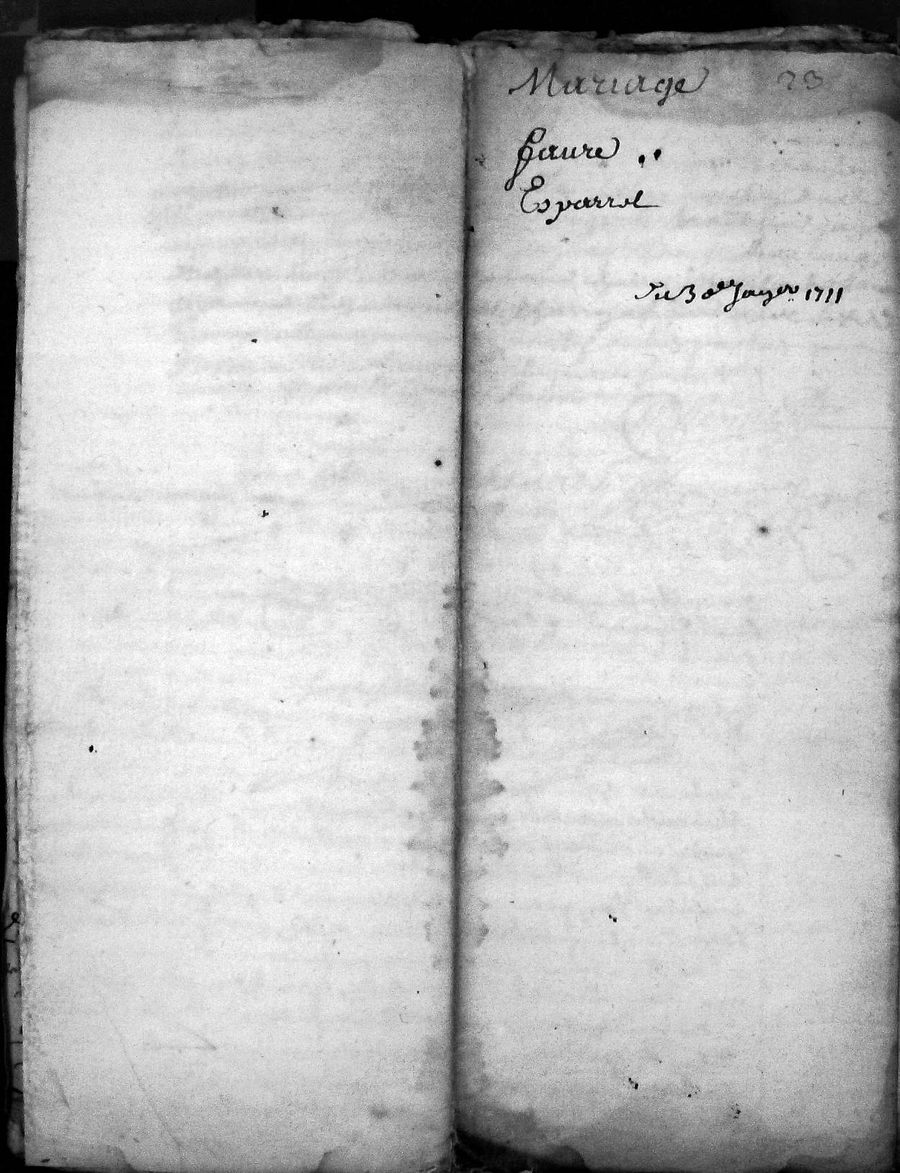 Mariage 23
faure
Esparrel
Du 3 de Janver 1711